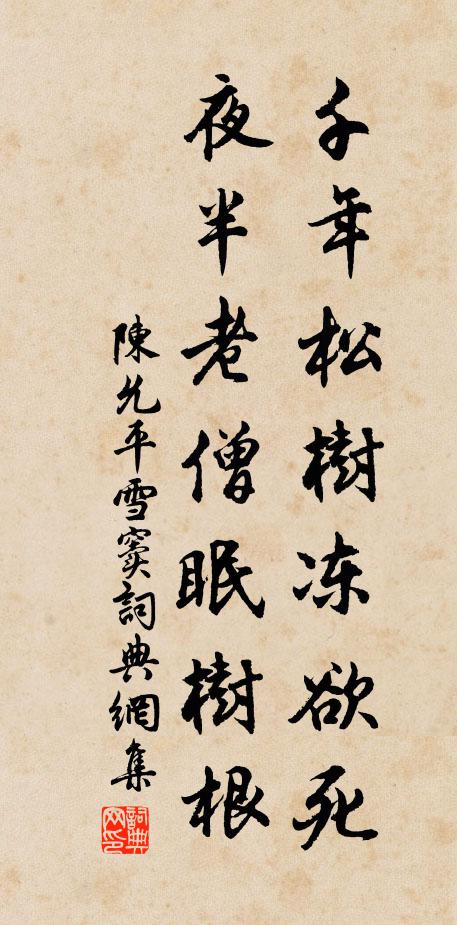 千年松樹冻欲死
夜半老僧眠樹根
陳允平雪竇詞典網集
詞典网印